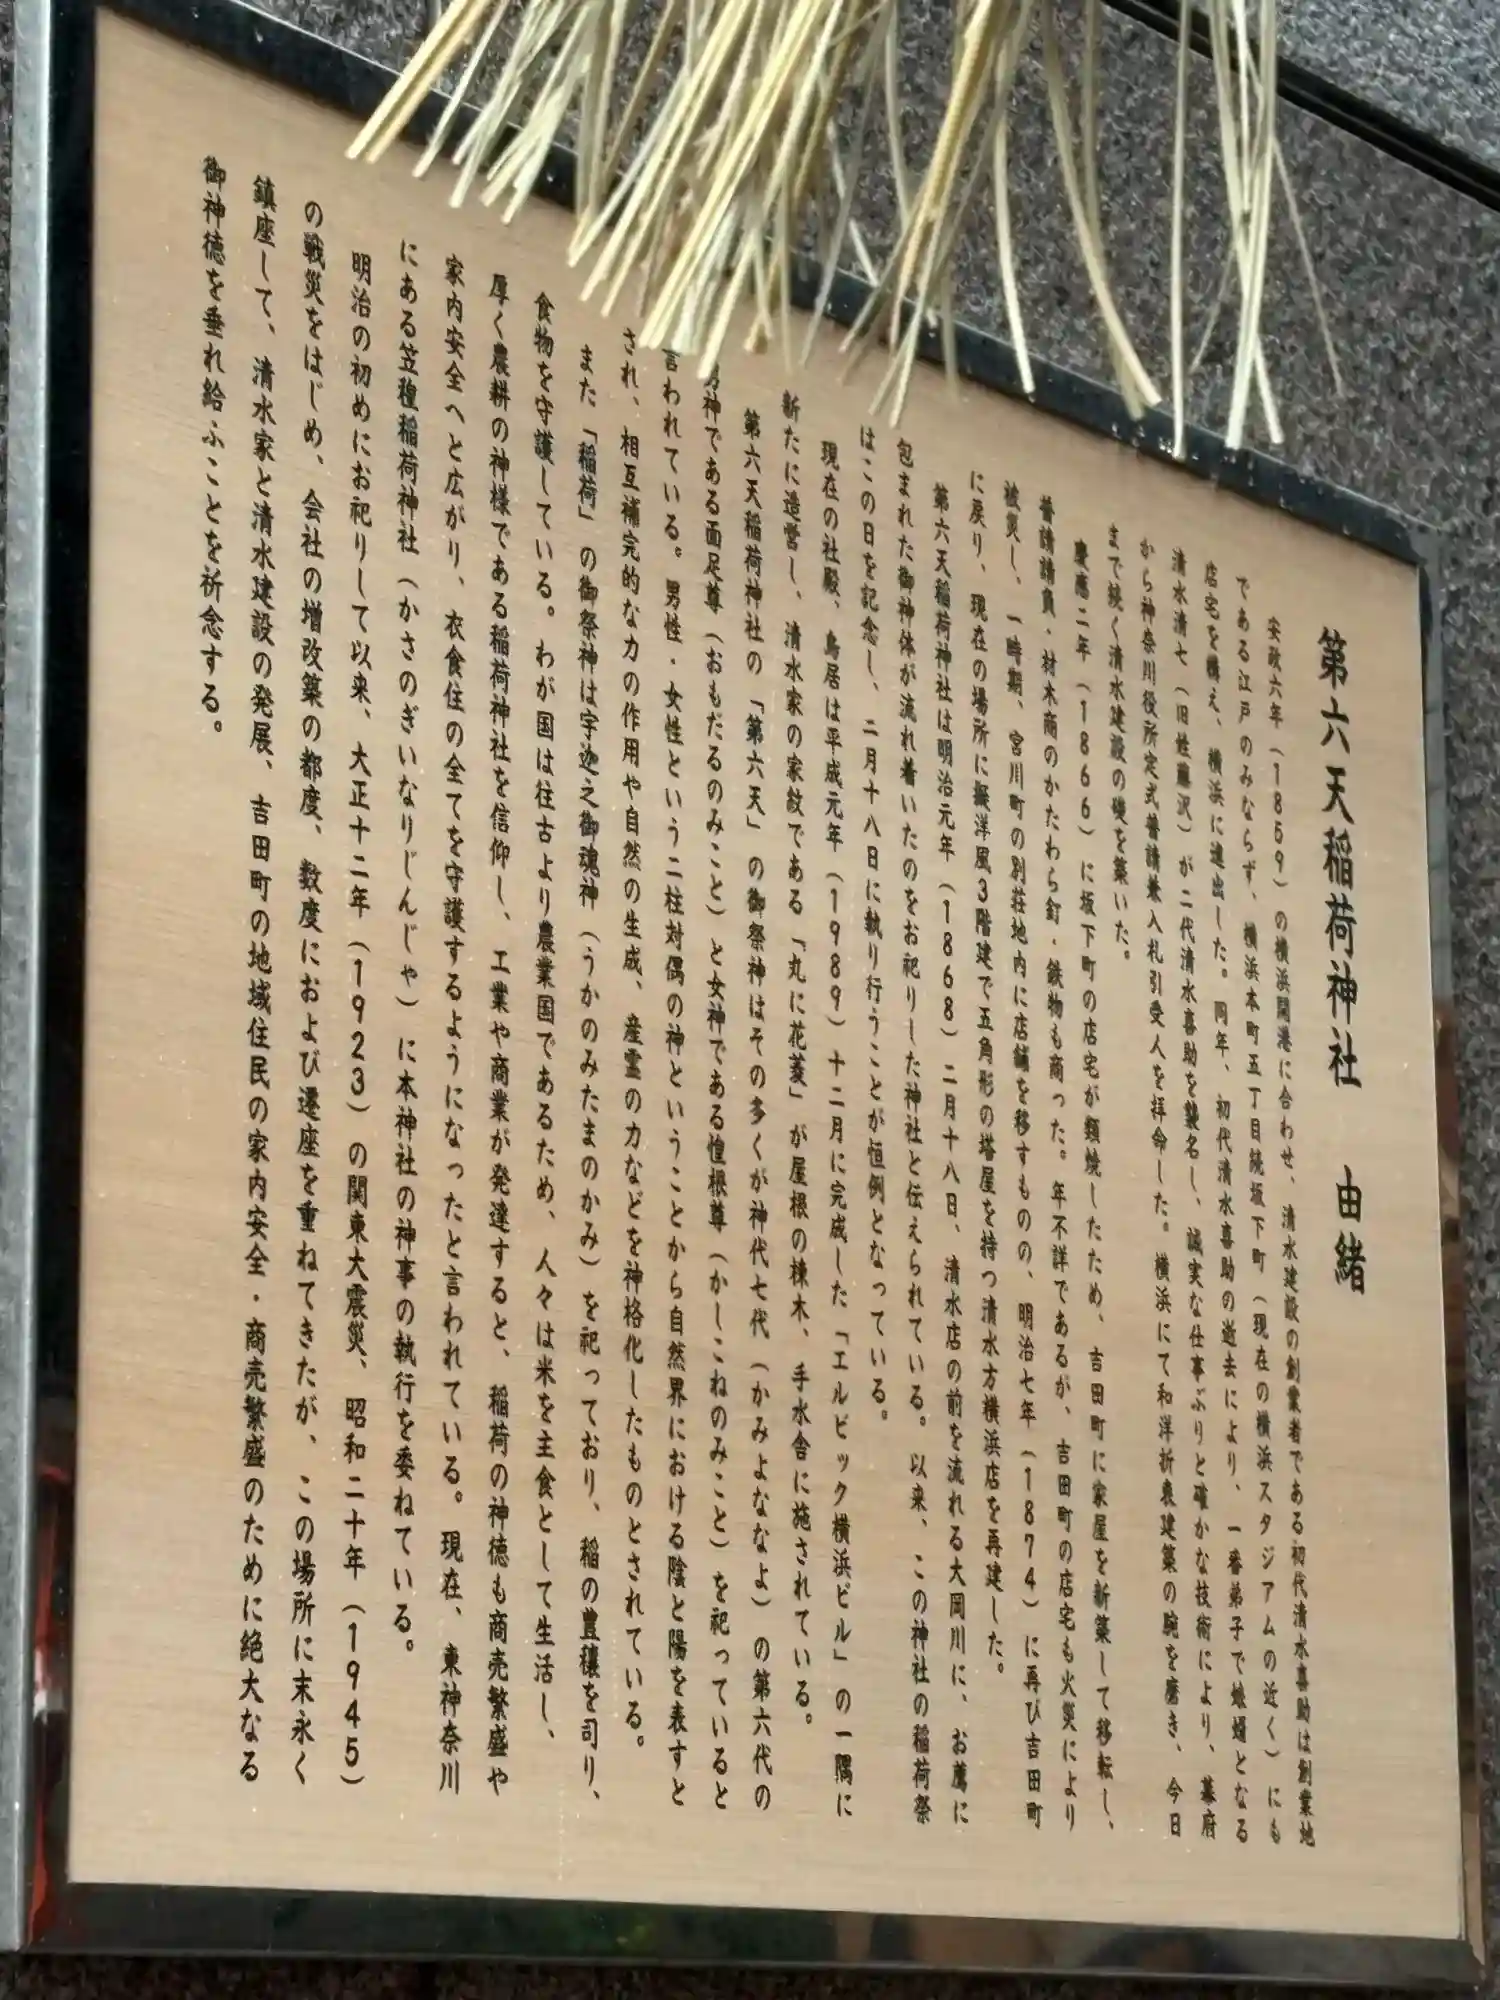 第六天稲荷神社 由緒
安政六年（1859）の横浜開港に合わせ、清水建設の創業者である初代清水喜助は創業地
である江戸のみならず、横浜本町五丁目続坂下町（現在の横浜スタジアムの近く）にも
店宅を構え、横浜に進出した。同年、初代清水喜助の逝去により、一番弟子で娘婿となる
清水清七（旧姓藤沢）が二代清水喜助を襲名し、誠実な仕事ぶりと確かな技術により、幕府
から神奈川役所定式普請兼入札引受人を拝命した。横浜にて和洋折衷建築の腕を磨き、今日
まで続く清水建設の礎を築いた。
慶應二年（1866）に坂下町の店宅が類焼したため、吉田町に家屋を新築して移転し、
普請請負・材木商のかたわら釘・鉄物も商った。年不詳であるが、吉田町の店宅も火災により
被災し、一時期、宮川町の別荘地内に店舗を移すものの、明治七年（1874）に再び吉田町
に戻り、現在の場所に擬洋風3階建で五角形の塔屋を持つ清水方横浜店を再建した。
第六天稲荷神社は明治元年（1868）二月十八日、清水店の前を流れる大岡川に、お薦に
包まれた御神体が流れ着いたのをお祀りした神社と伝えられている。以来、この神社の稲荷祭
はこの日を記念し、二月十八日に執り行うことが恒例となっている。
現在の社殿、鳥居は平成元年（1989）十二月に完成した「エルビック横浜ビル」の一隅に
新たに造営し、清水家の家紋である「丸に花菱」が屋根の棟木、手水舎に施されている。
第六天稲荷神社の「第六天」の御祭神はその多くが神代七代（かみよななよ）の第六代の
男神である面足尊（おもだるのみこと）と女神である惶根尊（かしこねのみこと）を祀っていると
言われている。男性・女性という二柱対偶の神ということから自然界における陰と陽を表すと
され、相互補完的な力の作用や自然の生成、産霊の力などを神格化したものとされている。
また「稲荷」の御祭神は宇迦之御魂神（うかのみたまのかみ）を祀っており、稲の豊穣を司り、
食物を守護している。わが国は往古より農業国であるため、人々は米を主食として生活し、
厚く農耕の神様である稲荷神社を信仰し、工業や商業が発達すると、稲荷の神徳も商売繁盛や
家内安全へと広がり、衣食住の全てを守護するようになったと言われている。現在、東神奈川
にある笠䅣稲荷神社（かさのぎいなりじんじゃ）に本神社の神事の執行を委ねている。
明治の初めにお祀りして以来、大正十二年（1923）の関東大震災、昭和二十年（1945）
の戦災をはじめ、会社の増改築の都度、数度におよび遷座を重ねてきたが、この場所に末永く
鎮座して、清水家と清水建設の発展、吉田町の地域住民の家内安全・商売繁盛のために絶大なる
御神徳を垂れ給ふことを祈念する。